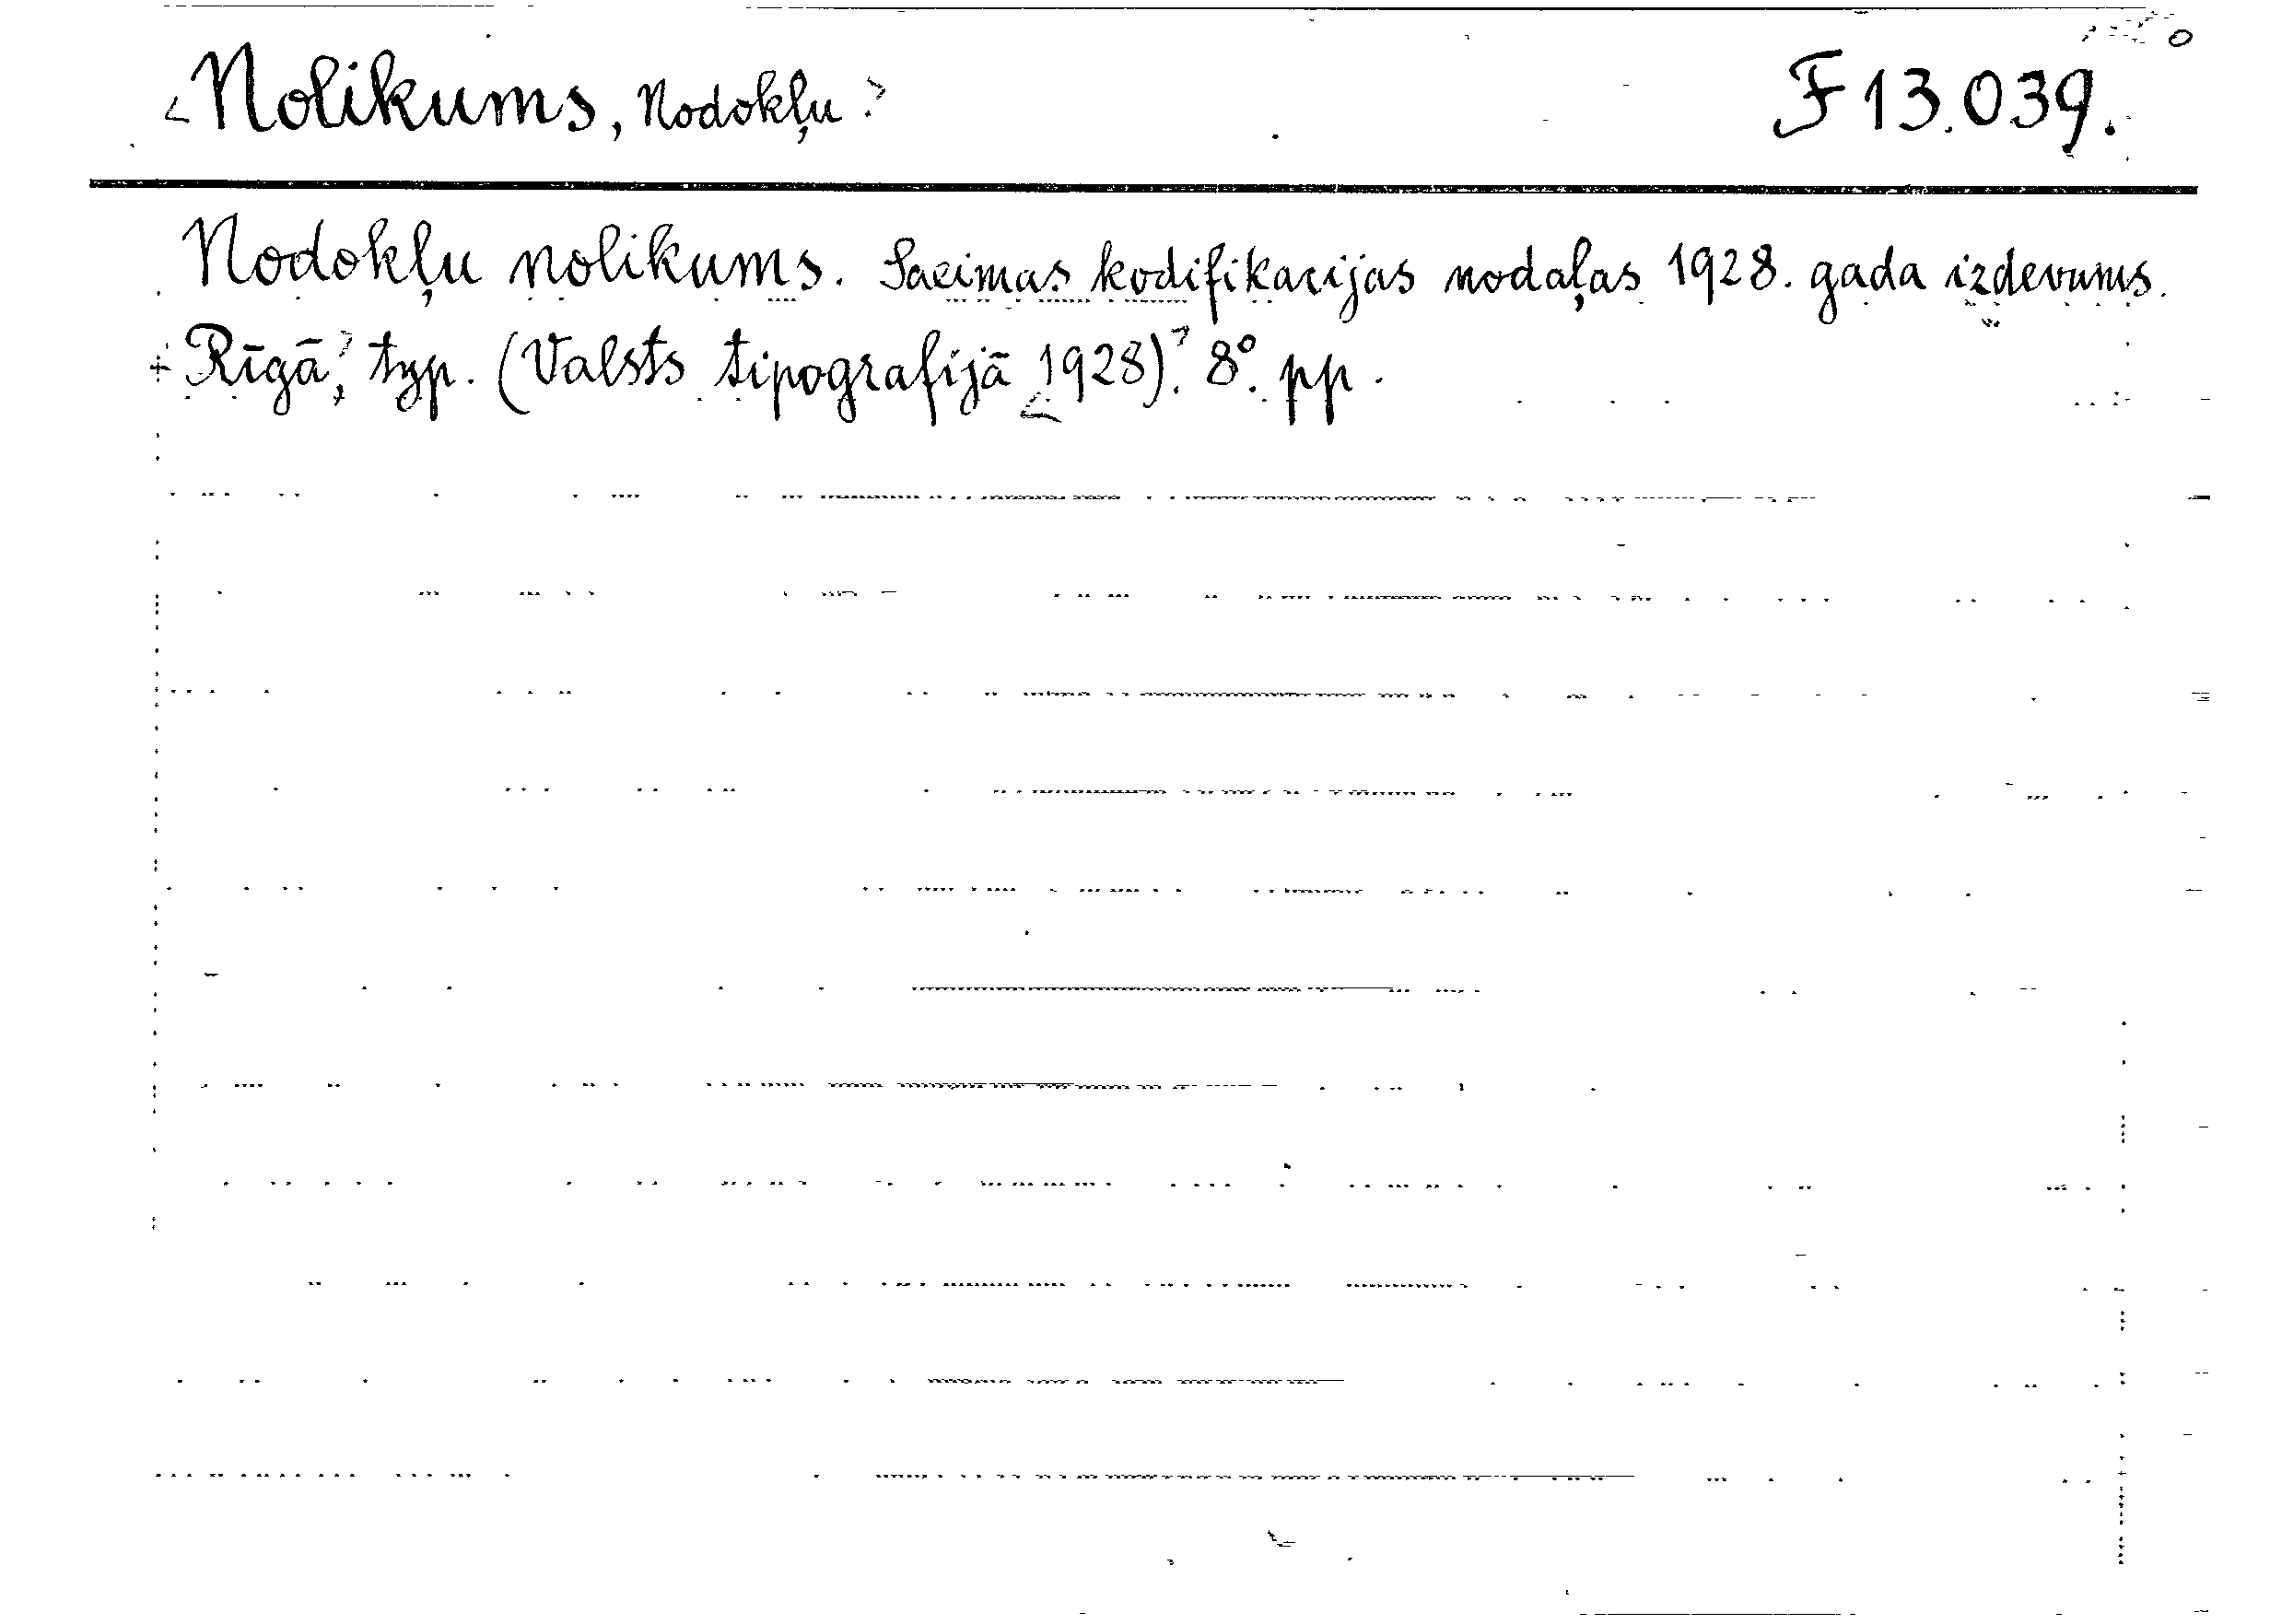 <Nolikums, Nodokļu> F 13.039.
Nodokļu nolikums. Saeimas kodifikacijas nodaļas 1928. gada izdevums.
+ Rīgā, typ. (Valsts tipografijā <1928)>. 8°. pp.